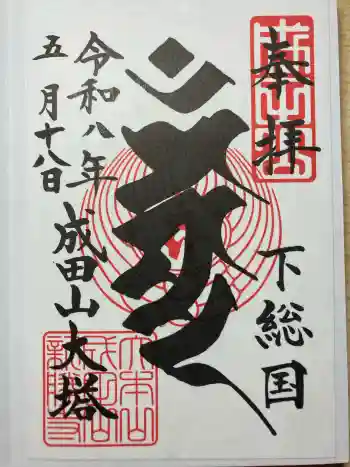 奉拝
下総国
成田山大塔
令和八年
五月十八日